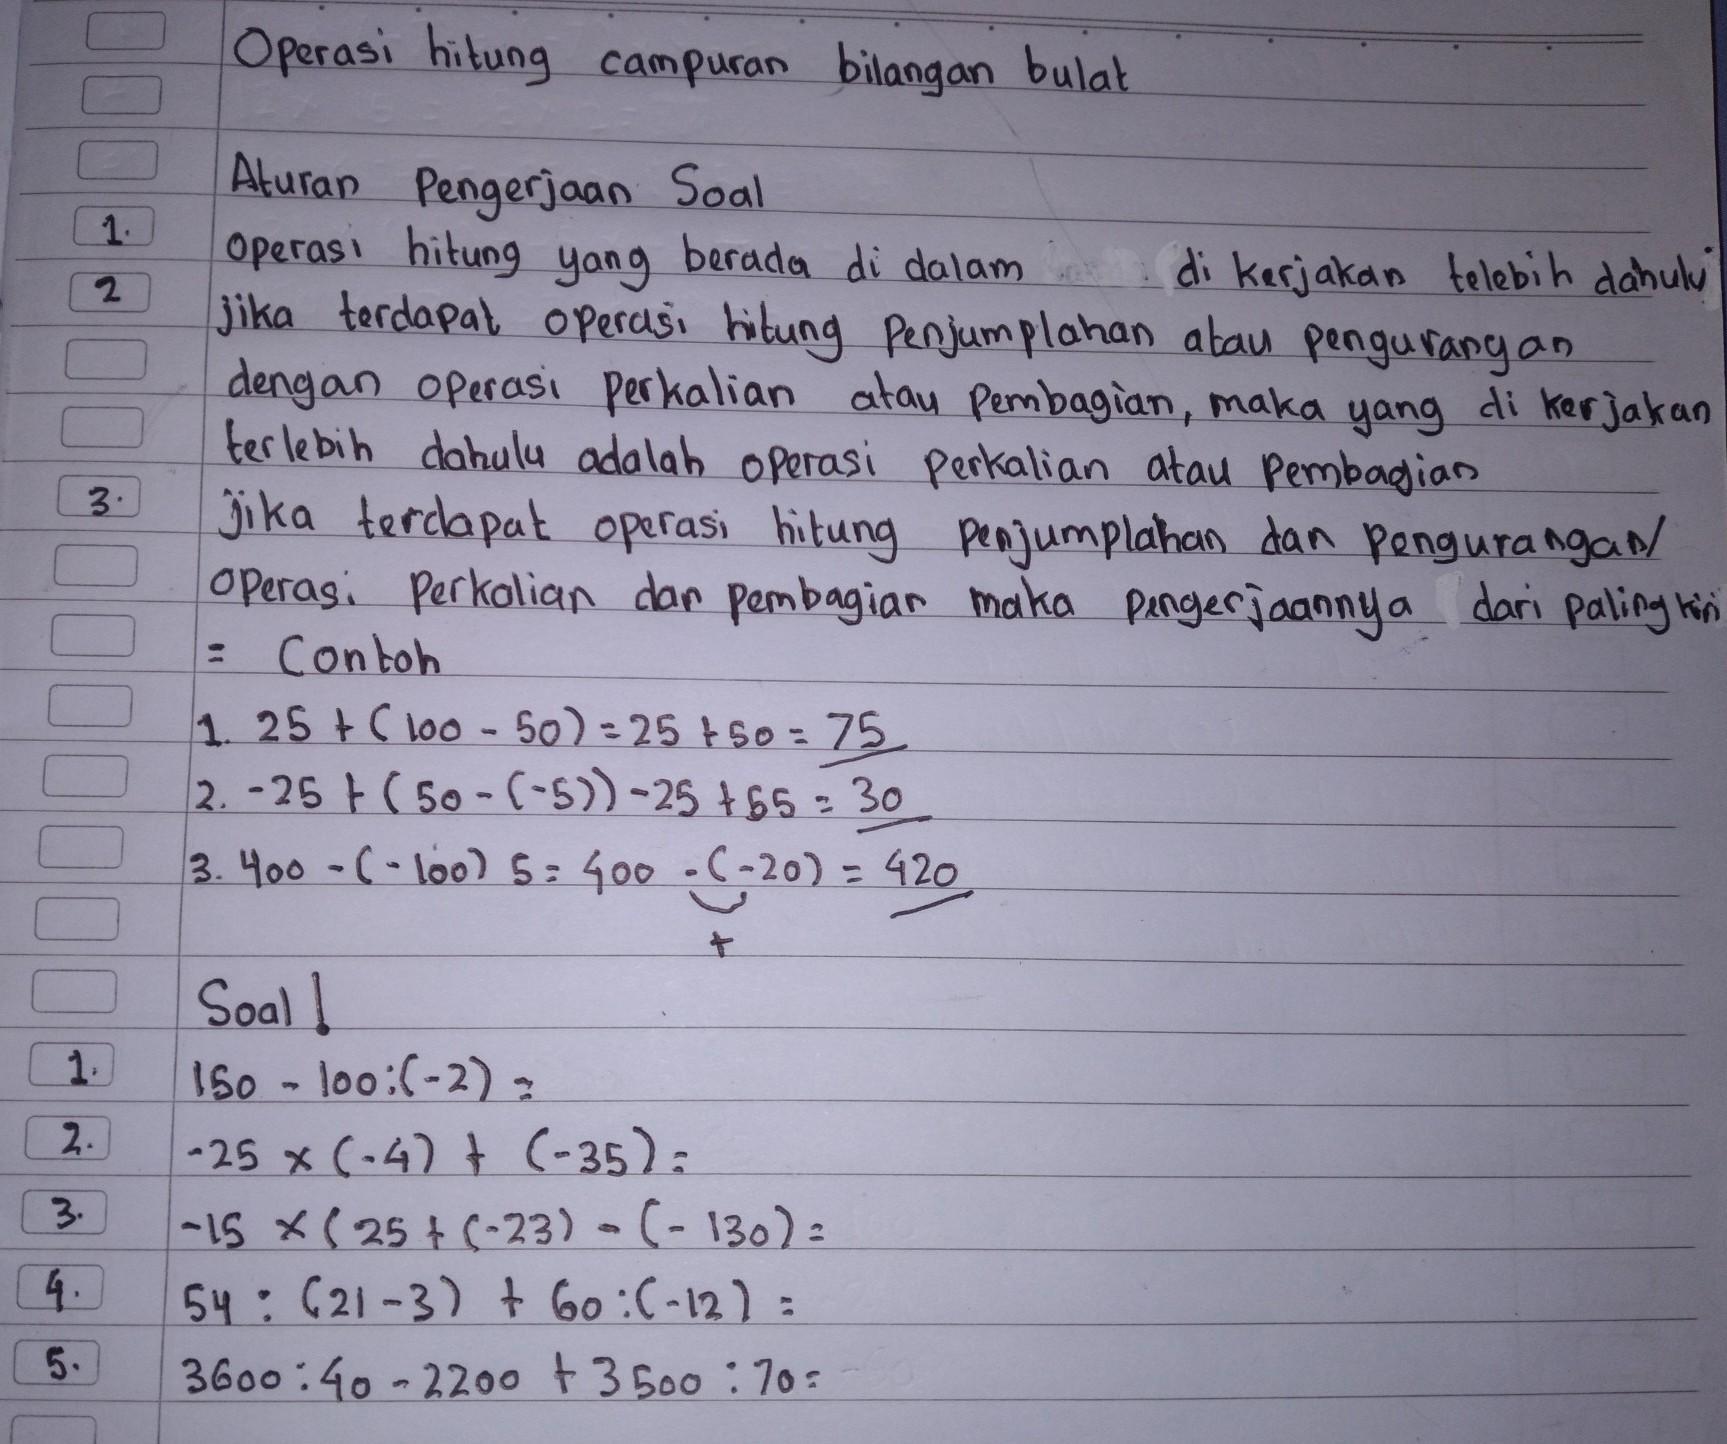 Operasi hitung campuran bilangan bulat
Aturan Pengerjaan Soal
1. operasi hitung yang berada di dalam di kerjakan telebih dahulu
2 jika terdapat operasi hitung Penjumplahan atau pengurangan
dengan operasi perkalian atau pembagian, maka yang di kerjakan
terlebih dahulu adalah operasi perkalian atau pembagian
3. jika terdapat operasi hitung penjumplahan dan pengurangan/
operasi perkalian dan pembagian maka pengerjaannya dari paling kiri
= Contoh
1. 25 + (100 - 50) = 25 + 50 = 75
2. -25 + (50 - (-5)) - 25 + 55 = 30
3. 400 - (-100) 5 = 400 - (-20) = 420
+
Soal!
1. 150 - 100 : (-2) =
2. -25 x (-4) + (-35) =
3. -15 x (25 + (-23) - (-130) =
4. 54 : (21 - 3) + 60 : (-12) =
5. 3600 : 40 - 2200 + 3500 : 70 =